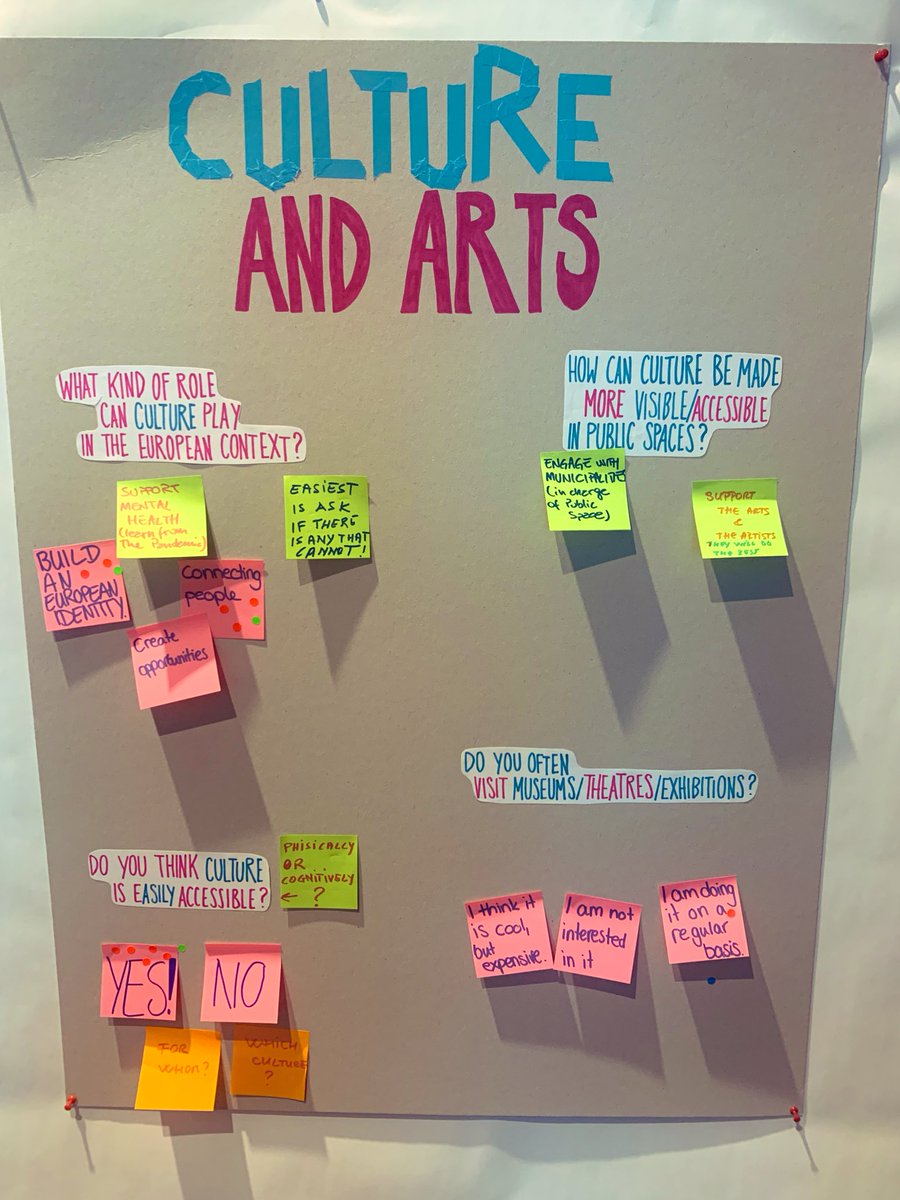 CULTURE
AND ARTS
WHAT KIND OF ROLE
CAN CULTURE PLAY
IN THE EUROPEAN CONTEXT?
SUPPORT
MENTAL
HEALTH
(learn from
The Pandemic)
EASIEST
IS ASK
IF THERE
IS ANY THAT
CANNOT!
BUILD
AN
EUROPEAN
IDENTITY.
Connecting
people
Create
opportunities
HOW CAN CULTURE BE MADE
MORE VISIBLE/ACCESSIBLE
IN PUBLIC SPACES?
ENGAGE WITH
(in charge
of Public
Space)
SUPPORT
THE ARTS
&
THE ARTISTS
THEY WILL DO
THE REST
DO YOU THINK CULTURE
IS EASILY ACCESSIBLE?
PHISICALLY
OR
COGNITIVELY
← ?
YES!
NO
FOR
WHOM?
WHICH
CULTURE
?
DO YOU OFTEN
VISIT MUSEUMS/THEATRES/EXHIBITIONS?
I think it
is cool,
but
expensive.
I am not
interested
in it
I am doing
it on a
regular
basis.